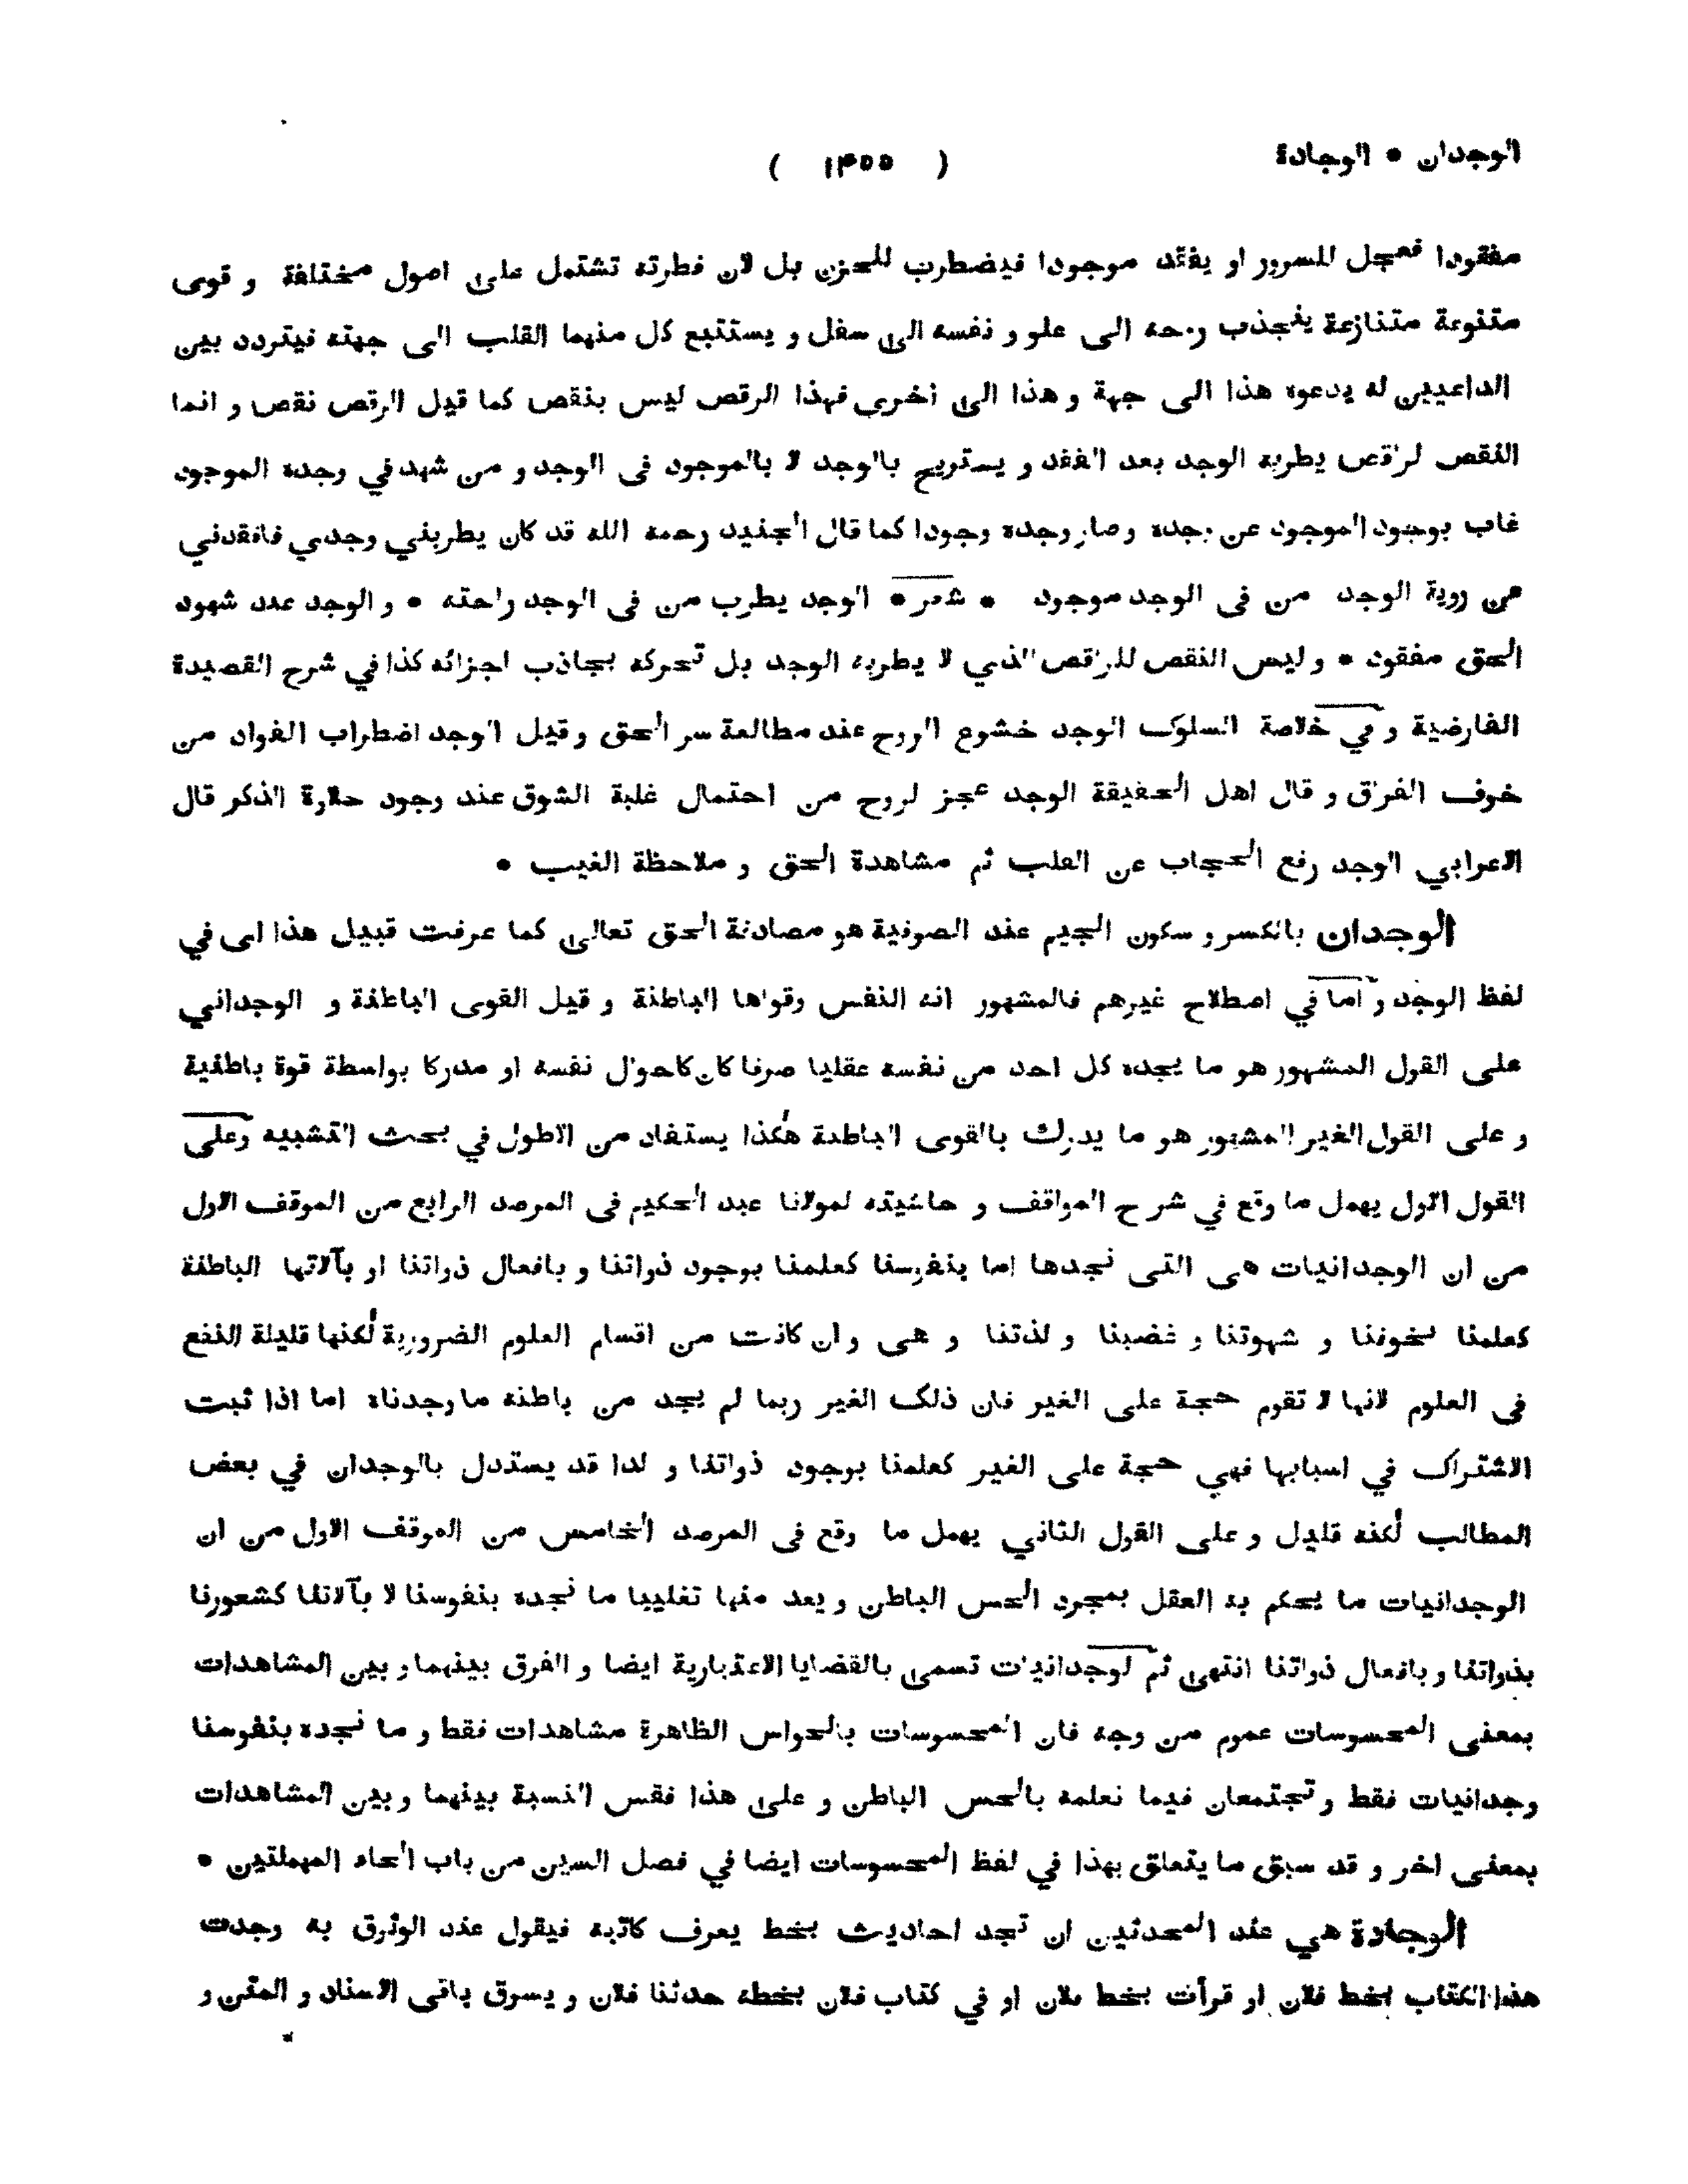 الوجدان * الوجادة ( ١٤٥٥ )
مفقودا فعجل للسرور او يفقد موجودا فيضطرب للحزن بل لان فطرته تشتمل على اصول مختلفة و قوى
متنوعة متنازعة ينجذب روحه الى علو و نفسه الى سفل و يستتبع كل منهما القلب الى جهته فيتردد بين
الداعيين له يدعوه هذا الى جهة و هذا الى اخرى فهذا الرقص ليس بنقص كما قيل الرقص نقص و انما
النقص لراقص يطربه الوجد بعد الفقد و يستريح بالوجد لا بالموجود فى الوجد و من شهد في وجده الموجود
غاب بوجود الموجود عن وجده و صار وجده وجودا كما قال الجنيد رحمه الله قد كان يطربني وجدي فافقدني
من روية الوجد من فى الوجد موجود * شعر * الوجد يطرب من فى الوجد راحته * و الوجد عند شهود
الحق مفقود * و ليس النقص للراقص الذي لا يطربه الوجد بل تحركه بجاذب اجزائه كذا في شرح القصيدة
الفارضية و في خلاصة السلوك الوجد خشوع الروح عند مطالعة سر الحق و قيل الوجد اضطراب الفواد من
خوف الفراق و قال اهل الحقيقة الوجد عجز لروح من احتمال غلبة الشوق عند وجود حلاوة الذكر قال
الاعرابي الوجد رفع الحجاب عن القلب ثم مشاهدة الحق و ملاحظة الغيب *
الوجدان بالكسر و سكون الجيم عند الصوفية هو مصادفة الحق تعالى كما عرفت قبيل هذا اى في
لفظ الوجد و اما في اصطلاح غيرهم فالمشهور انه النفس وقواها الباطنة و قيل القوى الباطنة و الوجداني
على القول المشهور هو ما يجده كل احد من نفسه عقليا صرفا كان كاحوال نفسه او مدركا بواسطة قوة باطنية
و على القول الغير المشهور هو ما يدرك بالقوى الباطنة هكذا يستفاد من الاطول في بحث التشبيه وعلى
القول الاول يهمل ما وقع في شرح المواقف و حاشيته لمولانا عبد الحكيم فى المرصد الرابع من الموقف الاول
من ان الوجدانيات هى التى نجدها اما بنفوسنا كعلمنا بوجود ذواتنا و بافعال ذواتنا او بآلاتها الباطنة
كعلمنا لخوفنا و شهوتنا و غضبنا و لذتنا و هى و ان كانت من اقسام العلوم الضرورية لكنها قليلة النفع
فى العلوم لانها لا تقوم حجة على الغير فان ذلك الغير ربما لم يجد من باطنه ما وجدناه اما اذا ثبت
الاشتراك في اسبابها فهي حجة على الغير كعلمنا بوجود ذواتنا و لذا قد يستدل بالوجدان في بعض
المطالب لكنه قليل و على القول الثاني يهمل ما وقع فى المرصد الخامس من الموقف الاول من ان
الوجدانيات ما يحكم به العقل بمجرد الحس الباطن و يعد منها تغليبا ما نجده بنفوسنا لا بآلاتنا كشعورنا
بذواتنا و بافعال ذواتنا انتهى ثم لوجدانيات تسمى بالقضايا الاعتبارية ايضا و الفرق بينهما و بين المشاهدات
بمعنى المحسوسات عموم من وجه فان المحسوسات بالحواس الظاهرة مشاهدات فقط و ما نجده بنفوسنا
وجدانيات فقط و تجتمعان فيما نعلمه بالحس الباطن و على هذا فقس النسبة بينهما و بين المشاهدات
بمعنى اخر و قد سبق ما يتعلق بهذا في لفظ المحسوسات ايضا في فصل السين من باب الحاء المهملتين *
الوجادة هي عند المحدثين ان تجد احاديث بخط يعرف كاتبه فيقول عند الوثوق به وجدت
هذا الكتاب بخط فلان او قرأت بخط فلان او في كتاب فلان بخطه حدثنا فلان و يسوق باقى الاسناد و المتن و